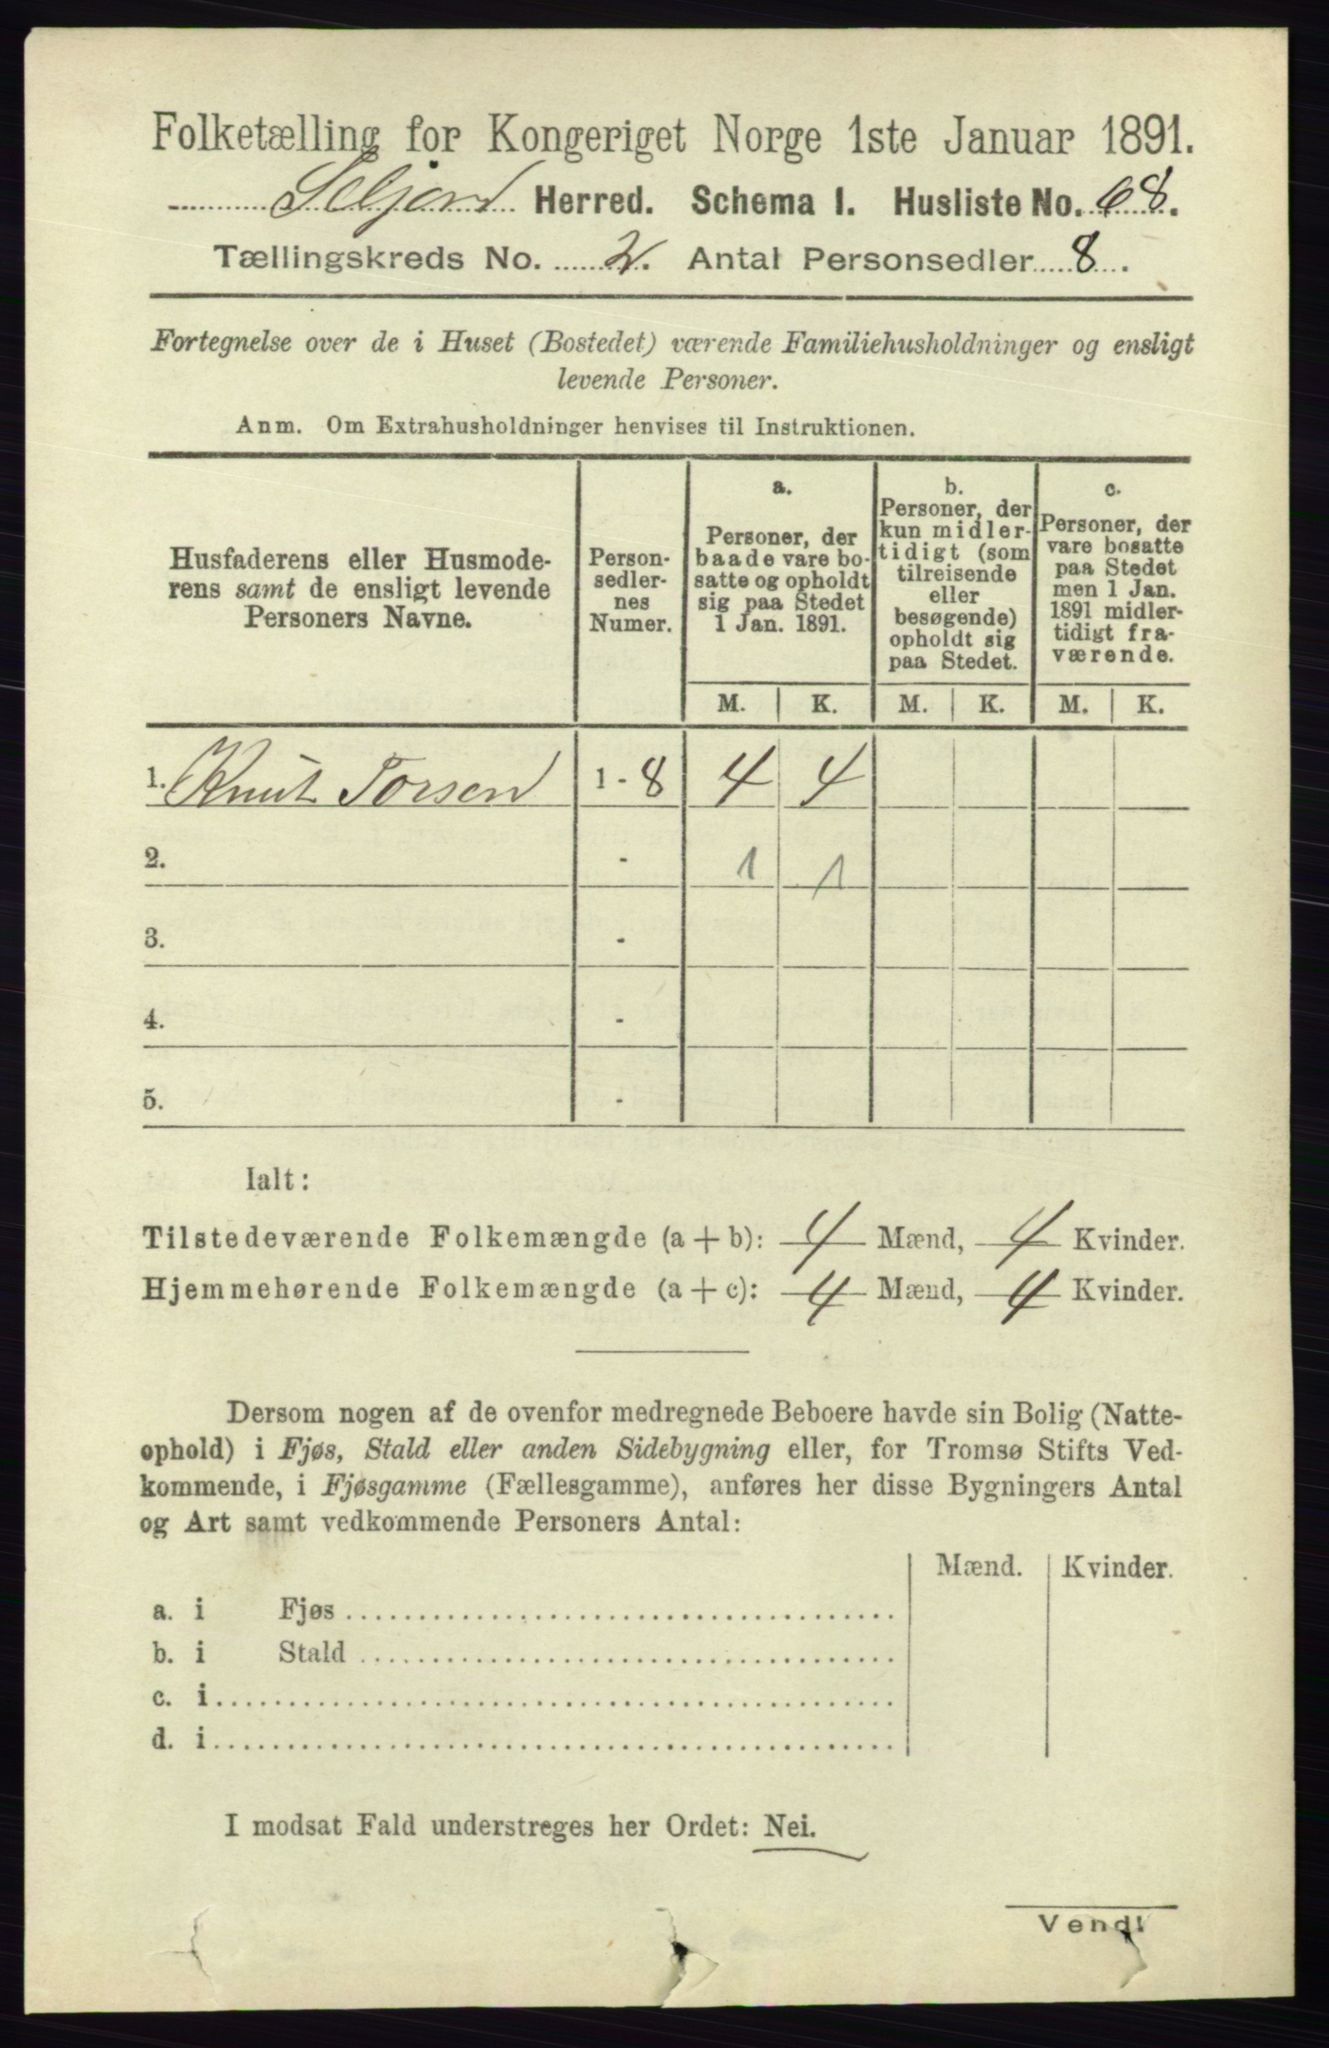 Folketælling for Kongeriget Norge 1ste Januar 1891.
Seljord Herred. Schema I. Husliste No. 68.
Tællingskreds No. 2. Antal Personsedler 8.
Fortegnelse over de i Huset (Bostedet) værende Familiehusholdninger og ensligt
levende Personer.
Anm. Om Extrahusholdninger henvises til Instruktionen.
Husfaderens eller Husmode-
rens samt de ensligt levende
Personers Navne.
Person-
sedler-
nes
Numer.
a.
Personer, der
baade vare bo-
satte og opholdt
sig paa Stedet
1 Jan. 1891.
b.
Personer, der
kun midler-
tidigt (som
tilreisende
eller
besøgende)
opholdt sig
paa Stedet.
c.
Personer, der
vare bosatte
paa Stedet
men 1 Jan.
1891 midler-
tidigt fra-
værende.
M. K. M. K. M. K.
1. Knut Torsen 1 - 8 4 4
2. - 1 1
3. -
4. -
5. -
Ialt:
Tilstedeværende Folkemængde (a + b): 4 Mænd, 4 Kvinder.
Hjemmehørende Folkemængde (a + c): 4 Mænd, 4 Kvinder.
Dersom nogen af de ovenfor medregnede Beboere havde sin Bolig (Natte-
ophold) i Fjøs, Stald eller anden Sidebygning eller, for Tromsø Stifts Ved-
kommende, i Fjøsgamme (Fællesgamme), anføres her disse Bygningers Antal
og Art samt vedkommende Personers Antal:
Mænd. Kvinder.
a. i Fjøs
b. i Stald
c. i
d. i
I modsat Fald understreges her Ordet: Nei.
Vend!